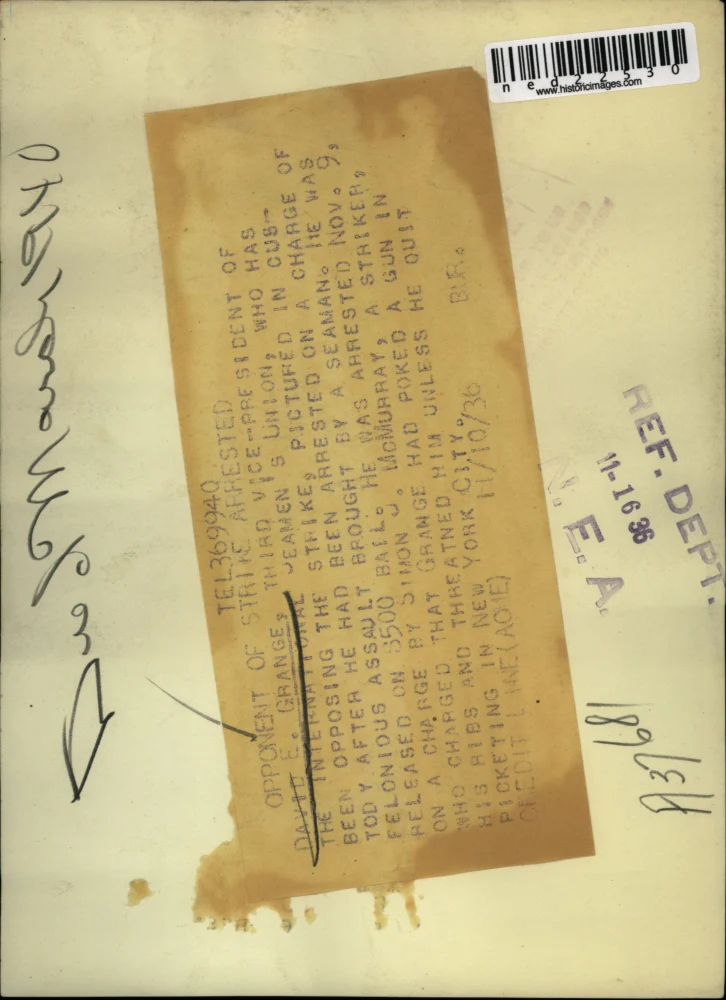 TEL369940
OPPONENT OF STRIKE ARRESTED
DAVID E. GRANGE, THIRD VICE-PRESIDENT OF
THE INTERNATIONAL SEAMEN'S UNION, WHO HAS
BEEN OPPOSING THE STRIKE, PICTURED IN CUS-
TODY AFTER HE HAD BEEN ARRESTED ON A CHARGE OF
FELONIOUS ASSAULT BROUGHT BY A SEAMAN. HE WAS
RELEASED ON $500 BAIL. HE WAS ARRESTED NOV. 9,
ON A CHARGE BY SIMON J. MCMURRAY, A STRIKER,
WHO CHARGED THAT GRANGE HAD POKED A GUN IN
HIS RIBS AND THREATNED HIM UNLESS HE QUIT
PICKETING IN NEW YORK CITY.
CREDIT LINE (ACME) 11/10/36 BUR.
ned22530
www.historicimages.com
REF. DEPT.
11-16 36
N. E. A.